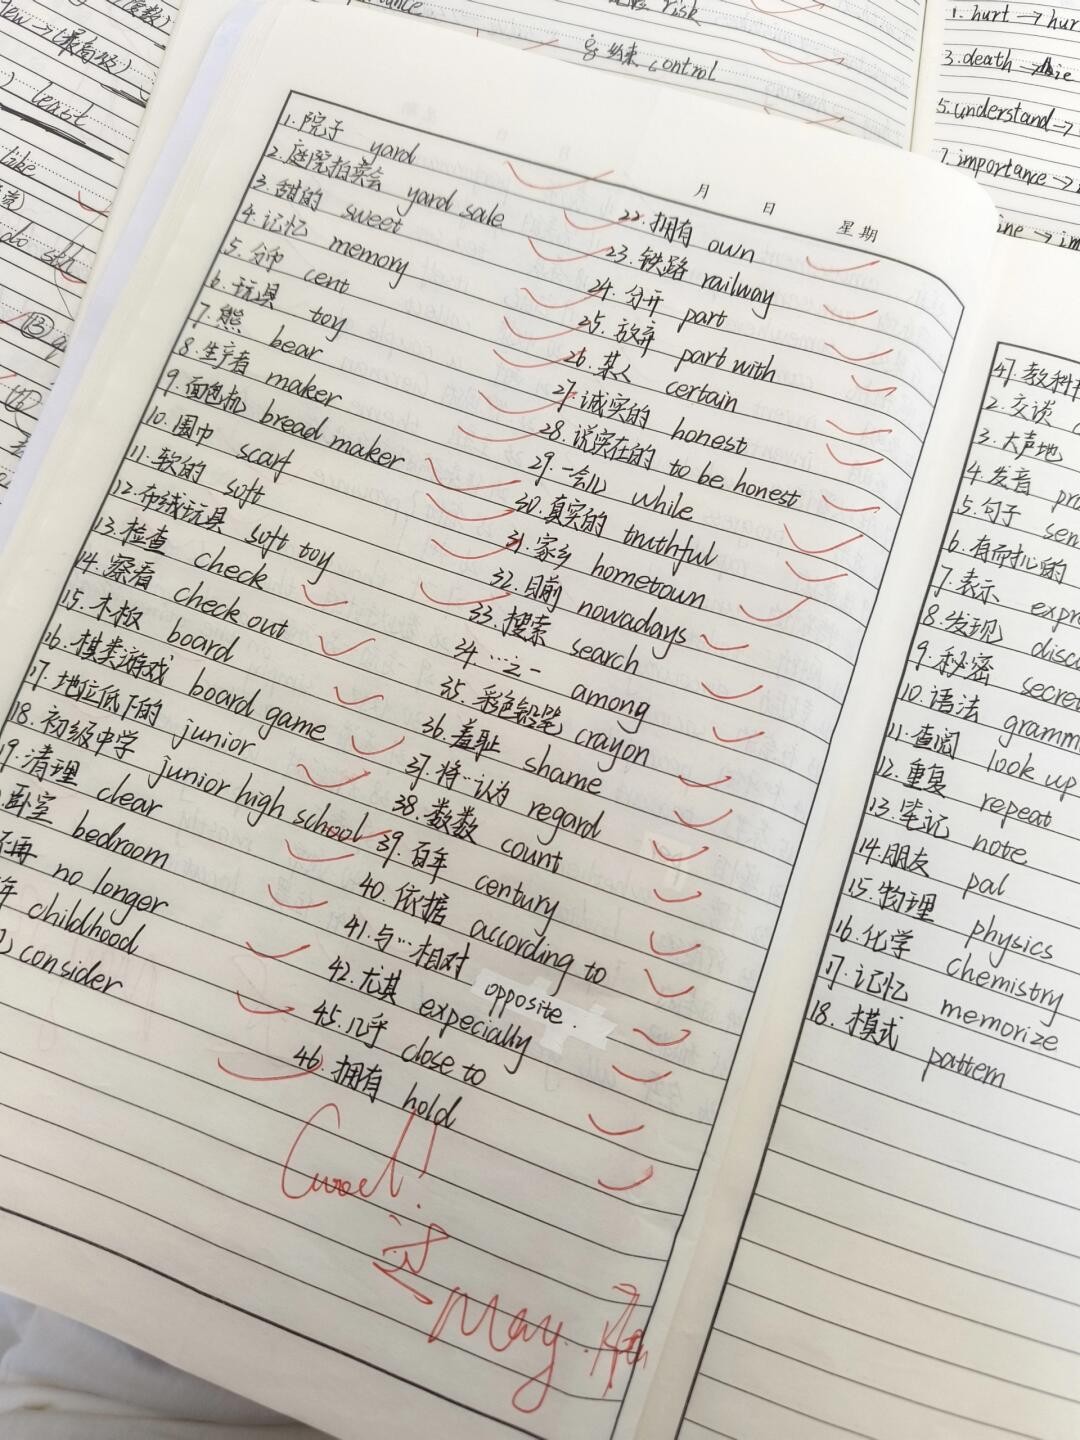 度数)
(最高级)
least
like
do sth
⑬
risk
约束 control
1. hurt → hur
3. death → die
5. understand →
7. importance →
ine → im
月 日 星期
1. 院子 yard
2. 庭院拍卖会 yard sale
3. 甜的 sweet
4. 记忆 memory
5. 分币 cent
6. 玩具 toy
7. 熊 bear
8. 生产者 maker
9. 面包机 bread maker
10. 围巾 scarf
11. 软的 soft
12. 布绒玩具 soft toy
13. 检查 check
14. 察看 check out
15. 木板 board
16. 棋类游戏 board game
17. 地位低下的 junior
18. 初级中学 junior high school
19. 清理 clear
卧室 bedroom
不再 no longer
年 childhood
consider
22. 拥有 own
23. 铁路 railway
24. 分开 part
25. 放弃 part with
26. 某人 certain
27. 诚实的 honest
28. 说实在的 to be honest
29. 一会儿 while
30. 真实的 truthful
31. 家乡 hometown
32. 目前 nowadays
33. 搜索 search
34. …之一 among
35. 彩色铅笔 crayon
36. 羞耻 shame
37. 将…认为 regard
38. 数数 count
39. 百年 century
40. 依据 according to
41. 与…相对 opposite.
42. 尤其 expecially
45. 几乎 close to
46. 拥有 hold
Good!
May.
47. 教科书
2. 交谈
3. 大声地
4. 发音 pro
5. 句子 sen
6. 有耐心的
7. 表示 expr
8. 发现 disco
9. 秘密 secre
10. 语法 gramm
11. 查阅 look up
12. 重复 repeat
13. 笔记 note
14. 朋友 pal
15. 物理 physics
16. 化学 chemistry
17. 记忆 memorize
18. 模式 pattern